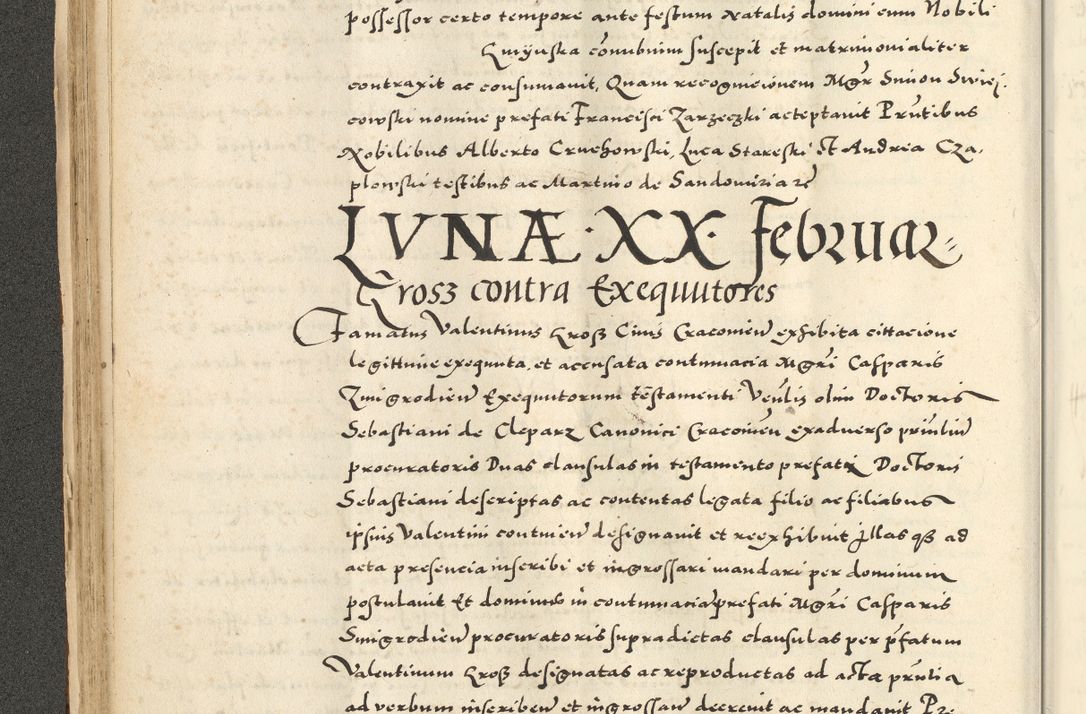 possessor certo tempore ante festum Natalis domini cum Nobili
Kmijnska conubium suscepit et matrimonialiter
contraxit ac consumavit, Quam recognicionem Mgr Simon Swiej
cowski nomine prefati Francisci Zarzeczki acteptavit Pñtibus
Nobilibus Alberto Cruchowski, Luca Stareski et Andrea Cza,
plowski testibus ac Martino de Sandomiria
LVNÆ · XX · FebRuaR
Krosz contra Exequutores
Famatus Valentinus Krosz Civis Cracovien exhibita cittacione
legittime exequuta, et accusata contumacia Mgri Casparis
Zmigrodien Exequutorum testamenti Venlis olim Doctoris
Sebastiani de Cleparz Canonici Cracovien exadverso
procuratoris Duas clausulas in testamento prefati Doctoris
Sebastiani descriptas ac contentas legata filio ac filiabus
ipsius Valentini continen designavit et reexhibuit Jllas qz ad
acta presencia inscribi et ingrossari mandari per dominum
postulavit Et dominus in contumacia prefati Mgri Casparis
Smigrodien procuratoris supradictas clausulas per pfatum
Valentinum Krosz designatas ac reproductas ad acta pñtia
ad verbum inscriben et ingrossan decrevit ac mandavit Pre